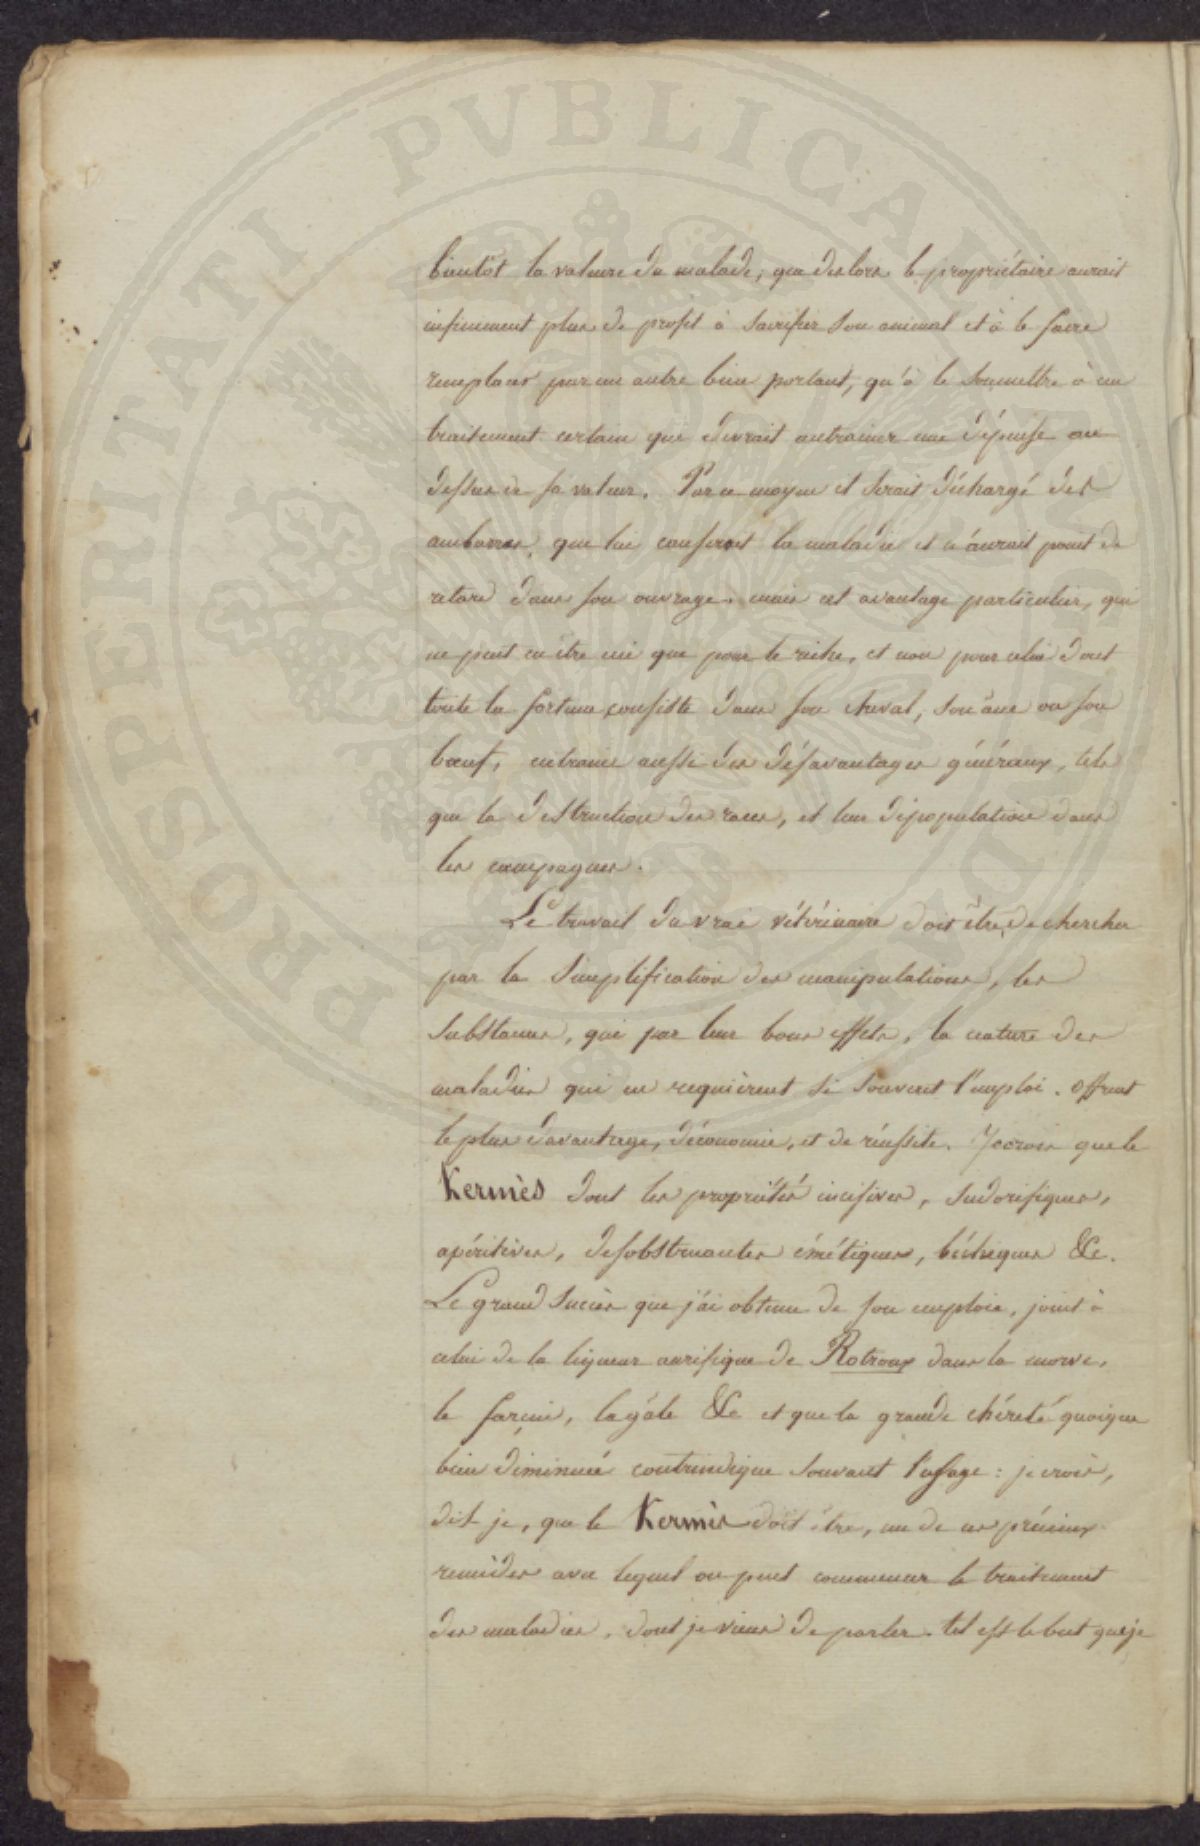 PROSPERITATI PUBLICAE
bientôt la valeure du malade, que deslors le propriétaire aurait
infiniment plus de profit à sacrifier son animal et à le faire
remplacer par un autre bien portant, qu'à le soumettre à un
traitement certain qui devrait entrainer une dépense au
dessus de sa valeur. Par ce moyen il serait déchargé des
embarras, que lui causerait la maladie et n'aurait point de
retard dans son ouvrage. mais cet avantage particulier, qui
ne peut en être une que pour le riche, et non pour celui dont
toute la fortune consiste dans son cheval, son âne ou son
bœuf, entraine aussi des désavantages généraux, tels
que la destruction des races, et leur dépopulation dans
les campagnes.
Le travail du vrai vétérinaire doit être, de chercher
par la simplification des manipulations, les
substances, qui par leur bons effets, la nature des
maladies qui en requièrent si souvent l'emploi. offrent
le plus davantage, d'économie, et de réussite. Je crois que le
Kermès dont les propriétés incisives, sudorifiques,
apéritives, desobstruantes émétiques, béchiques &c.
Le grand succès que j'ai obtenu de son emploie, joint à
celui de la liqueur aurifique de Rotroux dans la morve,
le farcin, la gâle &c et que la grande chéreté quoique
bien diminuée contrindique souvant l'usage : je crois,
dis je, que le Kermès doit être, un de ces précieux
remèdes avec lequel on peut commencer le traitement
des maladies, dont je viens de parler. tel est le but que je